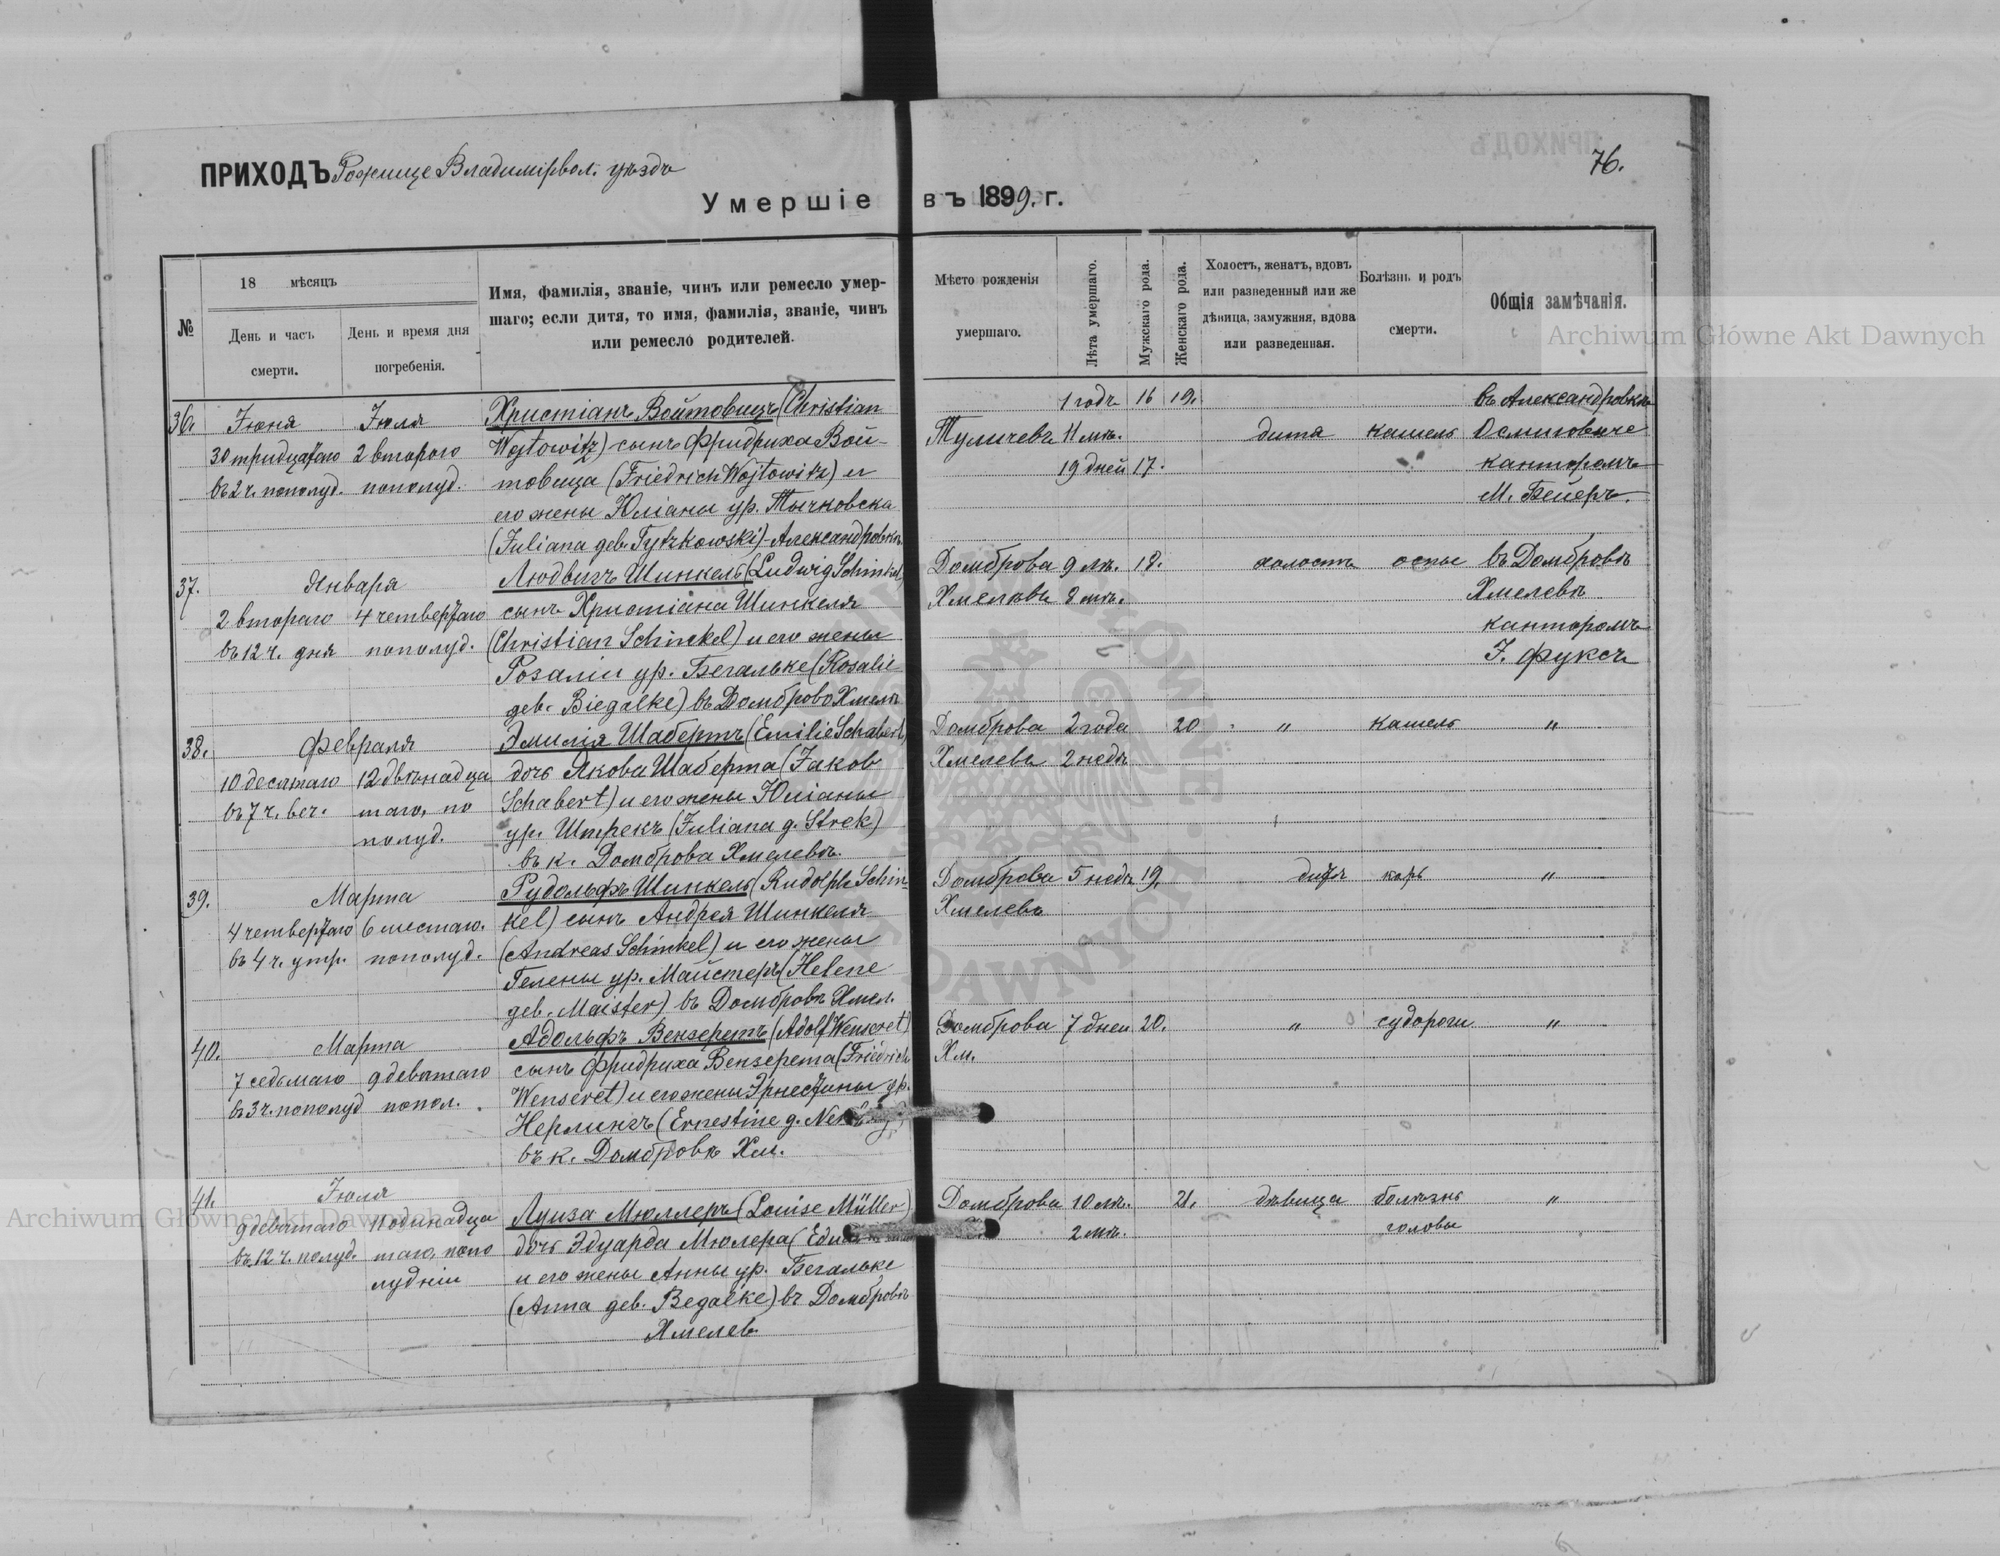 ПРИХОДЪ Рожище Владимірвол. уѣздъ
76.
Умершіе въ 1899. г.
№
18 мѣсяцъ
День и часъ смерти.
День и время дня погребенія.
Имя, фамилія, званіе, чинъ или ремесло умер-
шаго; если дитя, то имя, фамилія, званіе, чинъ
или ремесло родителей.
Мѣсто рожденія
умершаго.
Лѣта умершаго.
Мужскаго рода.
Женскаго рода.
Холостъ, женатъ, вдовъ
или разведенный или же
дѣвица, замужняя, вдова
или разведенная.
Болѣзнь и родъ
смерти.
Общія замѣчанія.
Archiwum Główne Akt Dawnych
36.
Іюня
30 тридцатаго
въ 2 ч. пополуд.
Іюля
2 второго
пополуд.
Христіанъ Войтовицъ (Christian
Wojtowitz) сынъ Фридриха Вой-
товица (Friedrich Wojtowitz) и
его жены Юліаны ур. Тычковска
(Juliana geb. Tytzkowski) Александровкѣ
Туличевъ
1 годъ
11 мѣс.
19 дней
16
17.
19.
дитя
кашель
въ Александровкѣ
Осмиговиче
канторомъ
М. Бейеръ.
37.
Января
2 второго
въ 12 ч. дня
4 четвертаго
пополуд.
Людвигъ Шинкель (Ludwig Schinkel)
сынъ Христіана Шинкеля
(Christian Schinkel) и его жены
Розаліи ур. Бегальке (Rosalie
geb. Biegalke) въ Домброво Хмелѣ
Домброва
Хмелевъ
9 лѣ.
8 мѣ.
18.
холостъ
оспы
въ Домбровѣ
Хмелевѣ
канторомъ
І. Фуксъ
38.
Февраля
10 десятаго
въ 7 ч. веч.
12 двѣнадца
таго, по
полуд.
Эмилія Шабертъ (Emilie Schabert)
дочь Якова Шаберта (Jakob
Schabert) и его жены Юліаны
ур. Штрекъ (Juliana g. Strek)
въ к. Домброва Хмелевѣ.
Домброва
Хмелевъ
2 года
2 недѣ
20
"
кашель
"
39.
Марта
4 четвертаго
въ 4 ч. утр.
6 шестаго.
пополуд.
Рудольфъ Шинкель (Rudolph Schin
kel) сынъ Андрея Шинкеля
(Andreas Schinkel) и его жены
Гелены ур. Майстеръ (Helene
geb. Maister) въ Домбровѣ Хмел.
Домброва
Хмелевъ
5 недѣ
19.
дитя
корь
"
40.
Марта
7 седьмаго
въ 3 ч. пополуд
9 девятаго
попол.
Адольфъ Вензеретъ (Adolf Wenseret)
сынъ Фридриха Вензерета (Friedrich
Wenseret) и его жены Эрнестины ур.
Нерлингъ (Ernestine g.
въ к. Домбровѣ Хм.
Домброва
Хм.
7 дней
20.
"
судороги
"
41.
Іюля
9 девятаго
въ 12 ч. полуд.
11 одинадца
таго, попо
лудни
Луиза Мюллеръ (Louise Müller)
дочь Эдуарда Мюлера
и его жены Анны ур. Бегальке
(Anna geb. Begalke) въ Домбровѣ
Хмелев
Домброва
10 лѣ.
2 мѣ.
21.
дѣвица
болѣзнь
головы
"
Archiwum Główne Akt Dawnych